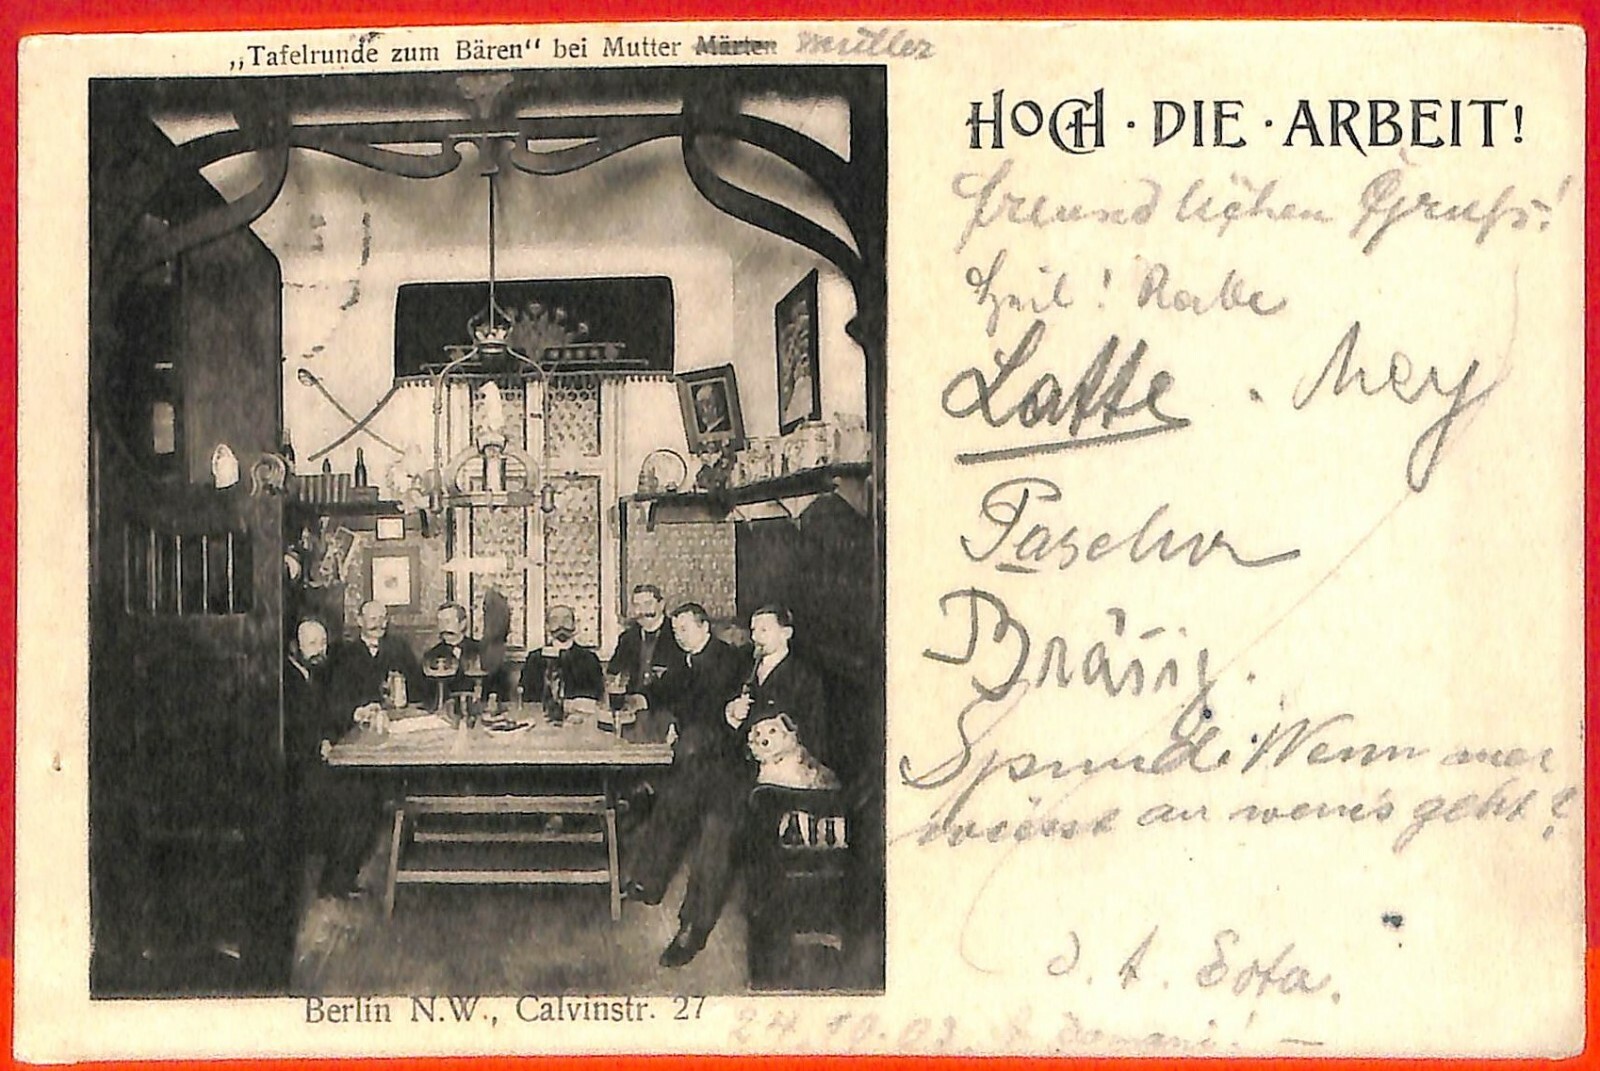 „Tafelrunde zum Bären“ bei Mutter Märten Müller
HOCH · DIE · ARBEIT!
freundlichen Gruß!
Heil! Rabe
Latte . Mey
Pascha
Bräsig.
Spund. Wenn
wenns geht?
d. t.
Berlin N.W., Calvinstr. 27
24.10.03.